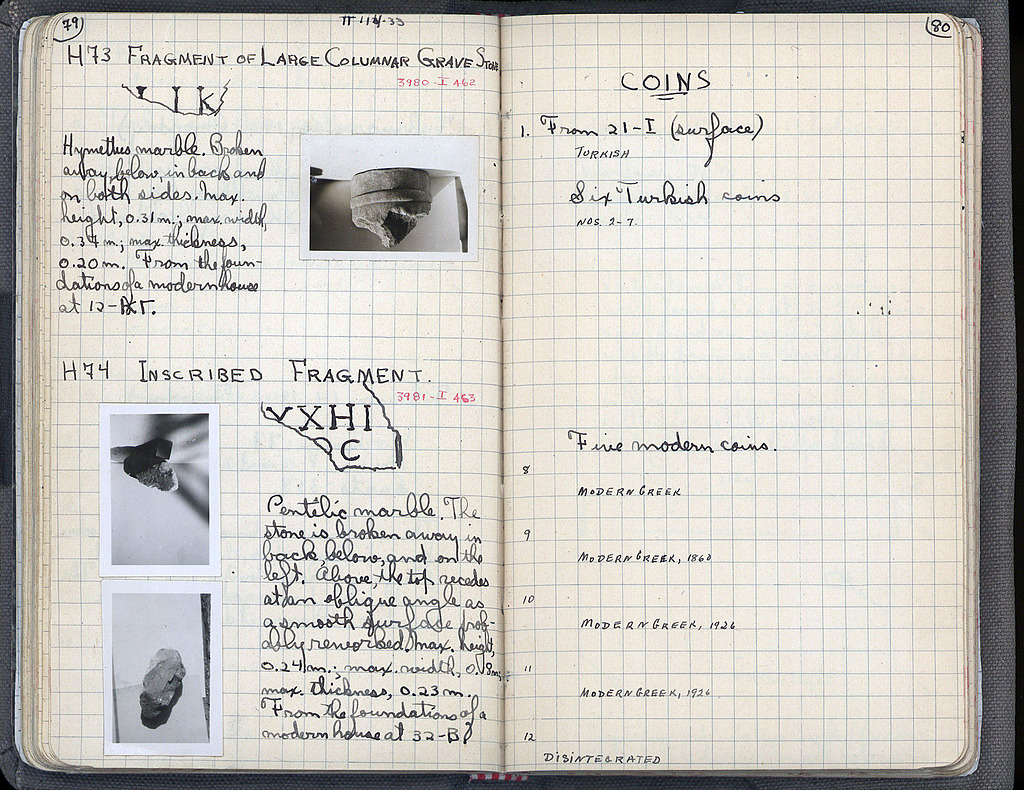 79
H73 FRAGMENT OF LARGE COLUMNAR GRAVE STONE
3980-I 462
I K
Hymettus marble. Broken
away, below, in back and
on both sides. Max.
height, 0.31 m.; max. width,
0.37 m.; max. thickness,
0.20 m. From the foun-
dations of a modern house
at 12-
H74 INSCRIBED FRAGMENT.
3981-I 463
XHI
C
Pentelic marble. The
stone is broken away in
back, below, and on the
left. Above, the top recedes
at an oblique angle as
a smooth surface prob-
ably reworked. Max. height,
0.24 m.; max. width,
max. thickness, 0.23 m.
From the foundations of a
modern house at 32-
80
COINS
1. From 21-I (surface)
TURKISH
Six Turkish coins
NOS. 2-7.
Five modern coins.
8
MODERN GREEK
9
MODERN GREEK, 1860
10
MODERN GREEK, 1926
11
MODERN GREEK, 1926
12
DISINTEGRATED